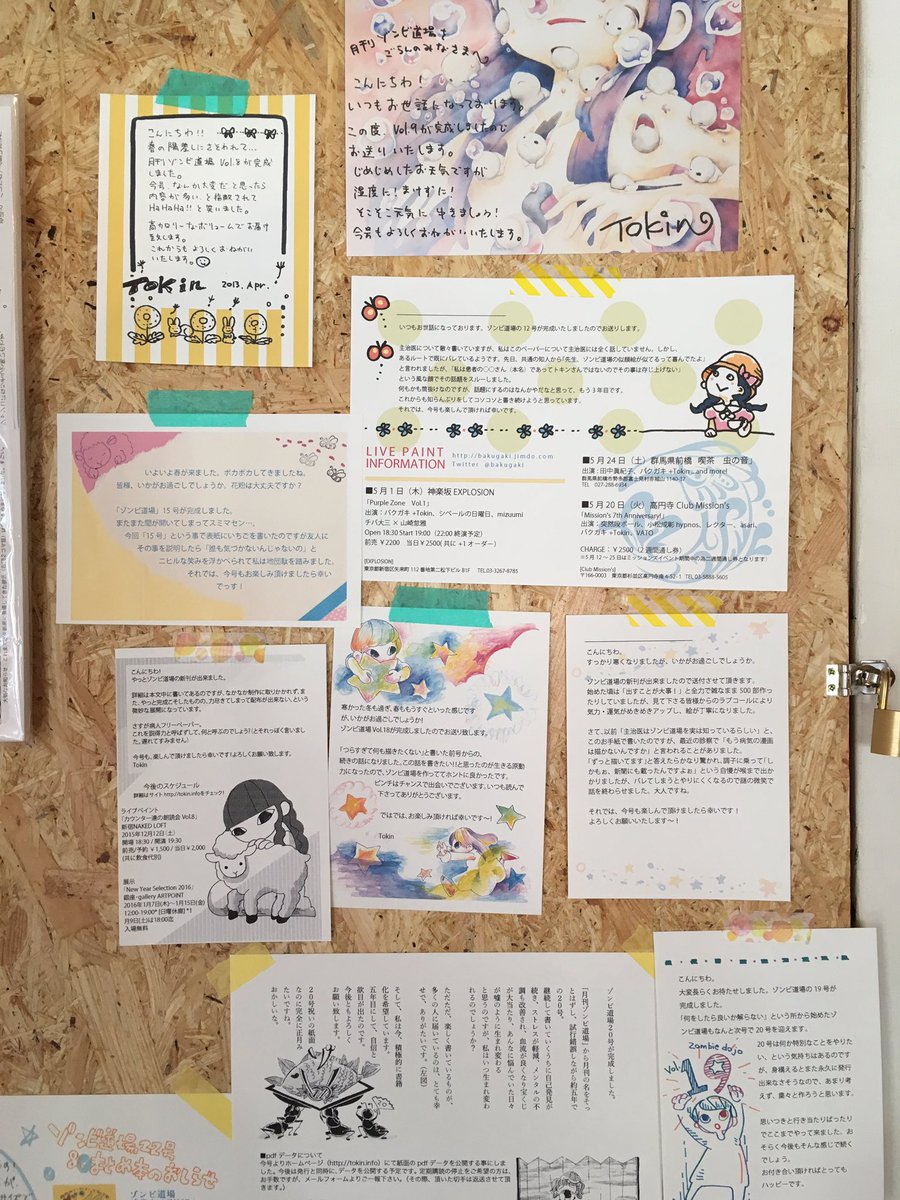 月刊ゾンビ道場を
ごらんのみなさまへ
こんにちわ!
いつもお世話になっております。
この度、Vol.9が完成しましたので
お送りいたします。
じめじめしたお天気ですが
湿度に!まけずに!
そこそこ元気に生きましょう!
今号もよろしくおねがいいたします。
Tokin
こんにちわ!!
春の陽差しにさそわれて…
月刊ゾンビ道場 Vol.8が完成
しました。
今号、なんか大変だと思ったら
内容が多い、と指摘されて
HaHaHa!!と笑いました。
高カロリーなボリュームでお届け
致します。
これからもよろしくおねがい
いたします。
Tokin 2013. Apr.
いつもお世話になっております、ゾンビ道場の12号が完成いたしましたのでお送りします。
主治医について散々書いていますが、私はこのペーパーについて主治医には全く話していません。しかし、
あるルートで既にバレているようです。先日、共通の知人から「先生、ゾンビ道場の似顔絵が似てるって喜んでたよ」
と言われましたが、「私は患者の○○さん(本名)であってトキンさんではないのでその事は存じ上げない」
という風な顔でその話題をスルーしました。
何もかも筒抜けなのですが、話題にするのはなんかやだなと思って、もう3年目です。
これからも知らんぷりをしてコソコソと書き続けようと思っています。
それでは、今号も楽しんで頂ければ幸いです。
LIVE PAINT
INFORMATION
http://bakugaki.jimdo.com
Twitter @bakugaki
■5月1日(木)神楽坂 EXPLOSION
「Purple Zone Vol.1」
出演:バクガキ +Tokin、シベールの日曜日、mizuumi
チバ大三 × 山崎怠雅
Open 18:30 Start 19:00 (22:00 終演予定)
前売 ¥2200 当日 ¥2500(共に +1 オーダー)
[EXPLOSION]
東京都新宿区矢来町 112 番地第二松下ビル B1F TEL.03-3267-8785
■5月24日(土)群馬県前橋 喫茶 虫の音」
出演:田中真紀子、バクガキ +Tokin...and more!
TEL 027-288-6934
■5月20日(火)高円寺 Club Mission's
「Mission's 7th Anniversary!」
出演:突然段ボール、小松成彰 hypnos、レクター、asari、
バクガキ +Tokin、VATO
CHARGE:¥2500(2週間通し券)
※5月12~25日はミッションズイベント期間中の為二週間通し券となります)
[Club Mission's]
〒166-0003 東京都杉並区高円寺南4-52-1 TEL 03-5888-5605
いよいよ春が来ました。ポカポカしてきましたね。
皆様、いかがお過ごしでしょうか。花粉は大丈夫ですか?
「ゾンビ道場」15号が完成しました。
またまた間が開いてしまってスミマセン…。
今回「15号」という事で表紙にいちごを描いたのですが友人に
その事を説明したら「誰も気づかないんじゃないの」と
ニヒルな笑みを浮かべられて私は地団駄を踏みました。
それでは、今号もお楽しみ頂けますと幸い
でっす!
こんにちわ!
やっとゾンビ道場の新刊が出来ました。
詳細は本文中に書いてあるのですが、なかなか制作に取りかかれず、ま
た、やっと完成こそしたものの、力尽きてしまって配布が出来ない、という
微妙な展開になっています。
さすが病人フリーペーパー。
これを説得力と呼ばずして、何と呼ぶのでしょう!(とそれっぽく言いまし
た。遅れてすみません)
今号も、楽しんで頂けましたら幸いです!よろしくお願い致します。
Tokin
今後のスケジュール
詳細はサイト http://tokin.infoをチェック!
ライブペイント
「カウンター達の朗読会 Vol.8」
新宿NAKED LOFT
2015年12月12日(土)
開場 18:30 / 開演 19:30
前売/予約 ¥1,500 / 当日 ¥2,000
(共に飲食代別)
展示
「New Year Selection 2016」
銀座・gallery ARTPOINT
2016年1月7日(木)〜1月15日(金)
12:00-19:00* [日曜休廊] *1
月9日(土)は18:00迄
入場無料
寒かった冬も過ぎ、春ももうすぐといった感じです
が、いかがお過ごしでしょうか!
ゾンビ道場Vol.18が完成しましたのでお送り致します。
「つらすぎて何も描きたくない」と書いた前号からの、
続きの話になりました。この話を書きたい!!と思ったのが生きる原動
力になったので、ゾンビ道場を作っててホントに良かったです。
ピンチはチャンスで出会いでございます。いつも読んで
下さってありがとうございます。
ではでは、お楽しみ頂ければ幸いです〜!
Tokin
こんにちは。
すっかり寒くなりましたが、いかがお過ごしでしょうか。
ゾンビ道場の新刊が出来ましたので送付させて頂きます。
始めた頃は「出すことが大事!」と全力で雑なまま500部作っ
たりしていましたが、見て下さる皆様からのラブコールにより
気力・運気がめきめきアップし、絵が丁寧になりました。
さて、以前「主治医はゾンビ道場を実は知っているらしい」と、
このお手紙で書いたのですが、最近の診察で「もう病気の漫画
は描かないんですか」と言われることがありました。
「ずっと描いてます」と答えたらかなり驚かれ、調子に乗って「し
かもぉ、新聞にも載ったんですよぉ」という自慢が喉まで出か
かりましたが、バレてしまうとやりにくくなるので謎の微笑で
話を終わらせました。大人ですね。
それでは、今号も楽しんで頂けましたら幸いです!
よろしくお願いいたします〜!
ゾンビ道場20号が完成しました。
「月刊ゾンビ道場」から月刊の名をそっ
とはずし、試行錯誤しながら約五年で
の20号。
継続して書いていくうちに自己発見が
続き、ストレスが軽減、メンタルの不
調も改善され、血流が良くなり宝くじ
が大当たり、あんなに悩んでいた日々
が嘘のように生まれ変わる
と思うのですが、私はいつ生まれ変わ
れるのでしょうか?
ただただ、楽しく書いているものが、
多くの人に届いているのは、とても幸
せで、ありがたいです。(左図)
そして、私は今、積極的に書籍
化を希望しています。
五年目にして、自信と
欲目が出たのです。
今後ともよろしく
お願い致します。
20号祝いの紙面
なのに完全に正月み
たいですね。
おかしいな。
■pdf データについて
今号よりホームページ(http://tokin.info)にて紙面の pdf データを公開する事にしま
した。今後は発行と同時に、データを公開する予定です。定期購読の停止をご希望の方は、
お手数ですが、メールフォームよりご一報下さい。(その際、頂いた切手は返送させて頂
きます。)
こんにちわ。
大変長らくお待たせしました。ゾンビ道場の19号が
完成しました。
「何をしたら良いか解らない」という所から始めたゾ
ンビ道場もなんと次号で20号を迎えます。
Zombie dojo
Vol.
19
20号は何か特別なことをやりた
い、という気持ちはあるのです
が、身構えるとまた永久に発行
出来なさそうなので、あまり考
えず、粛々と作ろうと思います。
思いつきと行き当たりばったり
でここまでやって来ました。お
そらく今後もそんな感じで続く
でしょう。
お付き合い頂ければとっても
ハッピーです。
ゾンビ道場22号
&まとめ本のおしらせ
ゾンビ道場